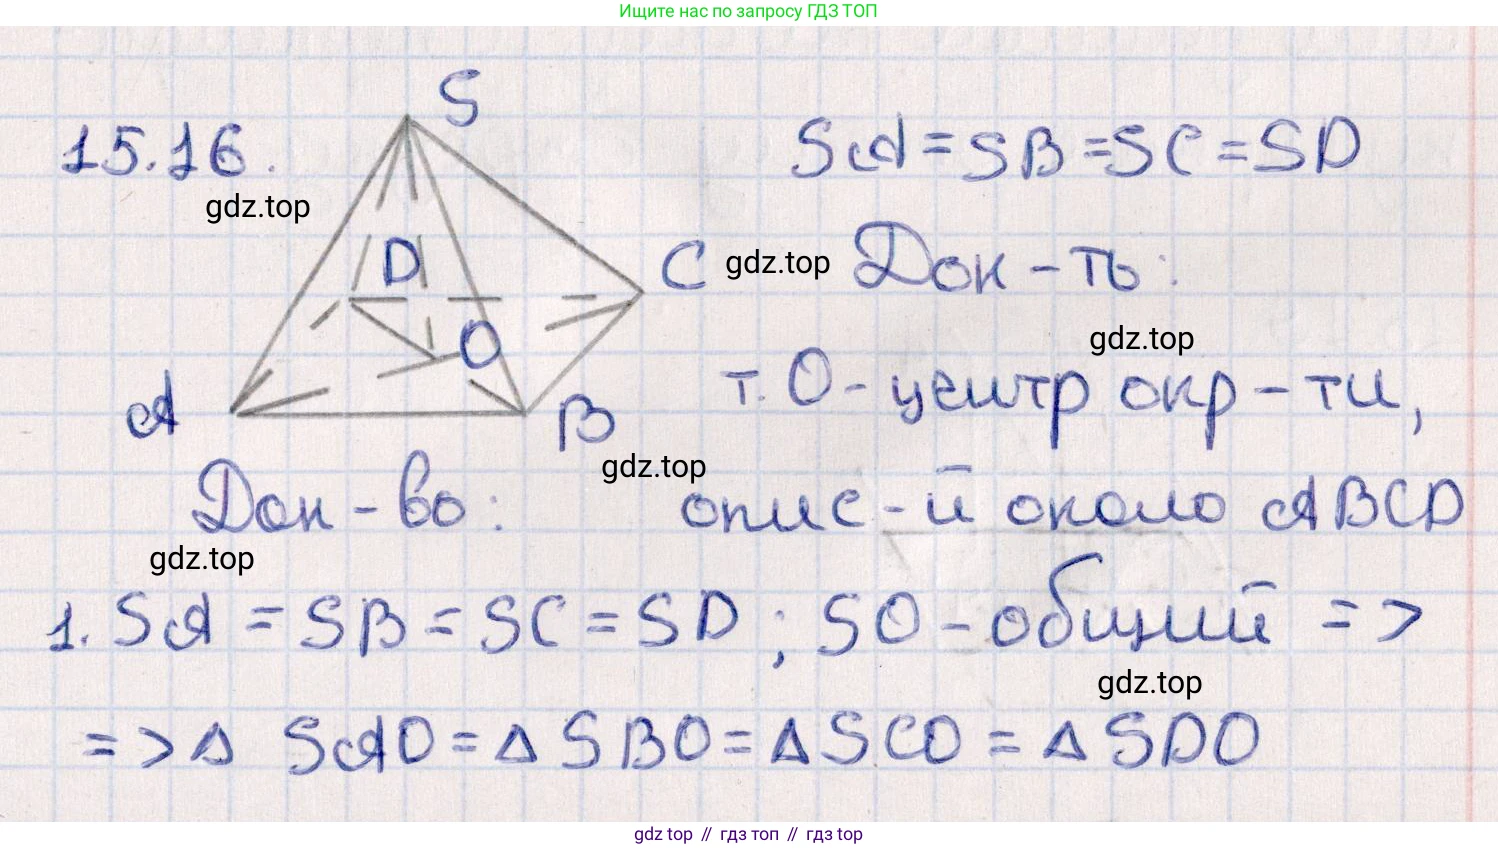 Ищите нас по запросу ГДЗ ТОП
S
15.16.
SA = SB = SC = SD
gdz.top
D
C
gdz.top
Док-ть:
O
gdz.top
т. O - центр окр-ти,
A
B
gdz.top
Док-во:
опис-й около ABCD
gdz.top
1. SA = SB = SC = SD ; SO - общий =>
gdz.top
=> Δ SAO = Δ SBO = Δ SCO = Δ SDO
gdz top // гдз топ // гдз top